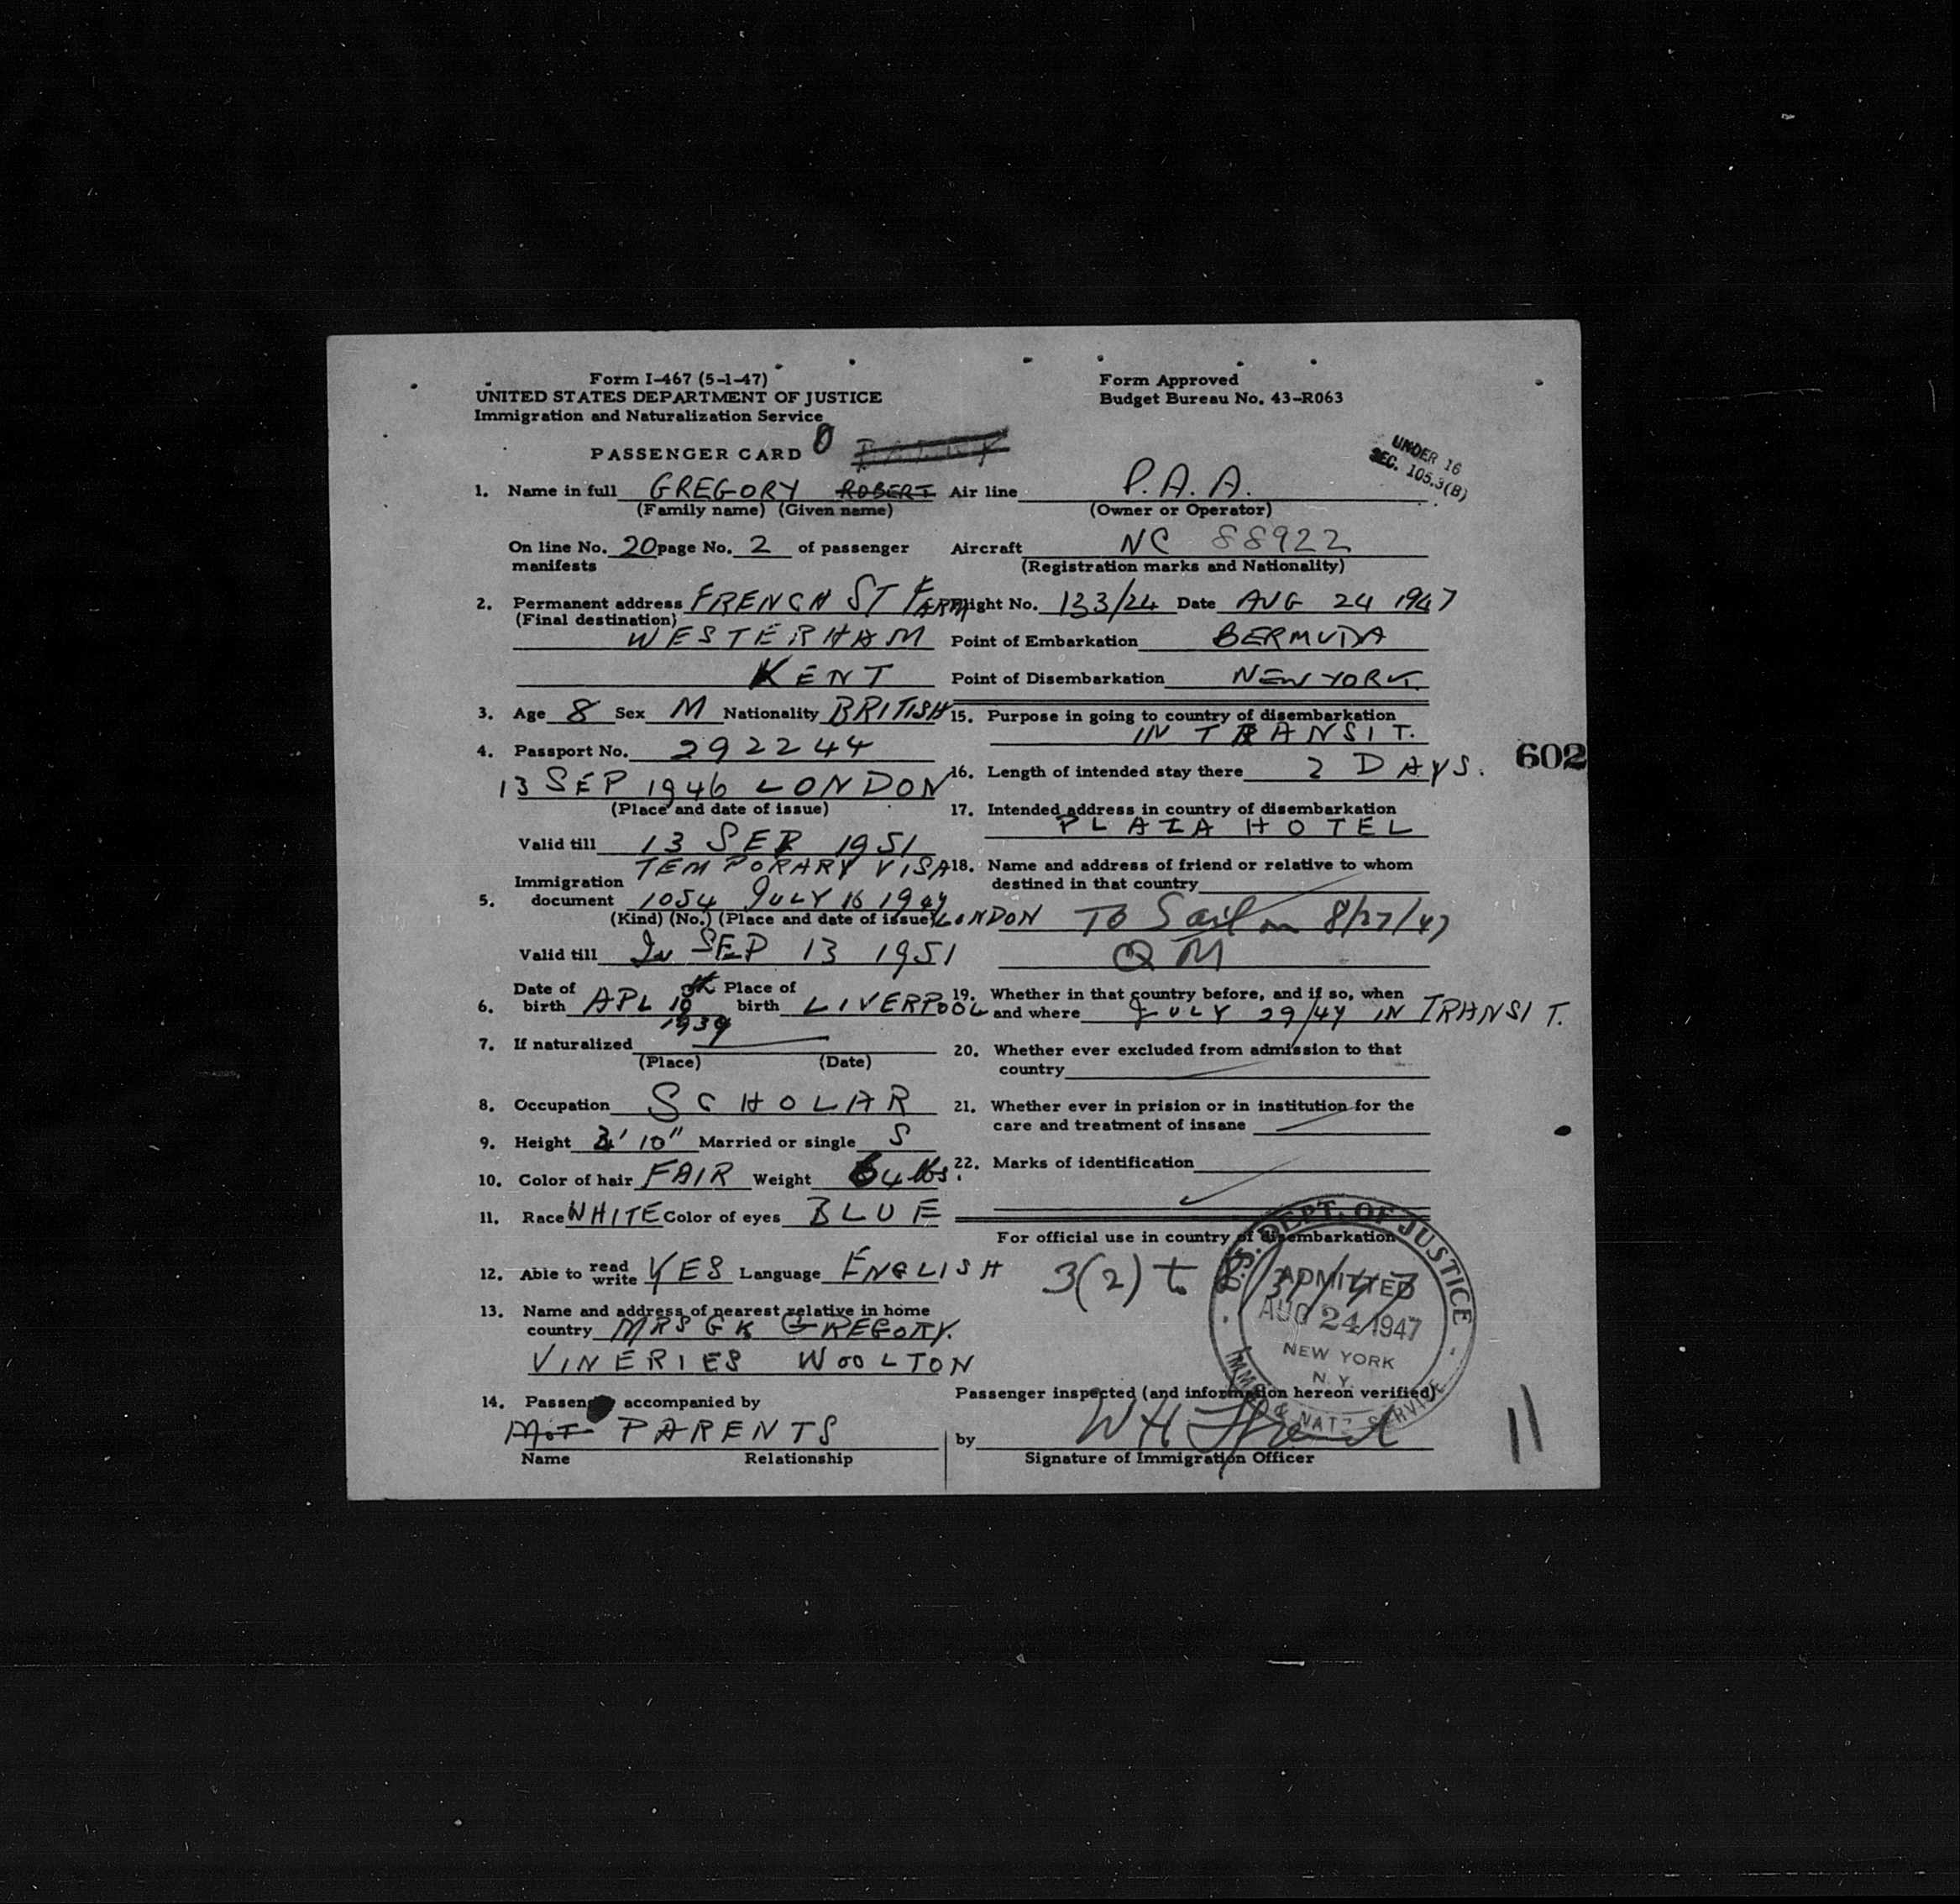 Form I-467 (5-1-47)
UNITED STATES DEPARTMENT OF JUSTICE
Immigration and Naturalization Service
Form Approved
Budget Bureau No. 43-R063
PASSENGER CARD
UNDER 16
SEC. 105.3(B)
1. Name in full GREGORY ROBERT
(Family name) (Given name)
On line No. 20 page No. 2 of passenger
manifests
2. Permanent address FRENCH ST FARM
(Final destination)
WESTERHAM
KENT
3. Age 8 Sex M Nationality BRITISH
4. Passport No. 292244
13 SEP 1946 LONDON
(Place and date of issue)
Valid till 13 SEP 1951
TEMPORARY VISA
Immigration
5. document 1054 JULY 16 1947
(Kind) (No.) (Place and date of issue) LONDON
Valid till SEP 13 1951
Date of Place of
6. birth APL 10 birth LIVERPOOL
1939
7. If naturalized
(Place) (Date)
8. Occupation SCHOLAR
9. Height 10" Married or single S
10. Color of hair FAIR Weight 64 lbs.
11. Race WHITE Color of eyes BLUE
12. Able to read write YES Language ENGLISH
13. Name and address of nearest relative in home
country MRS G K GREGORY.
VINERIES WOOLTON
14. Passenger accompanied by
PARENTS
Name Relationship
Air line P.A.A.
(Owner or Operator)
Aircraft NC 88922
(Registration marks and Nationality)
Flight No. 133/24 Date AUG 24 1947
Point of Embarkation BERMUDA
Point of Disembarkation NEW YORK.
15. Purpose in going to country of disembarkation
IN TRANSIT.
16. Length of intended stay there 2 DAYS.
602
17. Intended address in country of disembarkation
PLAZA HOTEL
18. Name and address of friend or relative to whom
destined in that country
To Sail on 8/27/47
QM
19. Whether in that country before, and if so, when
and where JULY 29/47 IN TRANSIT.
20. Whether ever excluded from admission to that
country
21. Whether ever in prision or in institution for the
care and treatment of insane
22. Marks of identification
For official use in country of disembarkation
3(2) to 8/31/47
U.S. DEPT. OF JUSTICE
ADMITTED
AUG 24 1947
NEW YORK
N.Y.
IMM. & NATZ SERVICE
Passenger inspected (and information hereon verified)
by W H
Signature of Immigration Officer
11